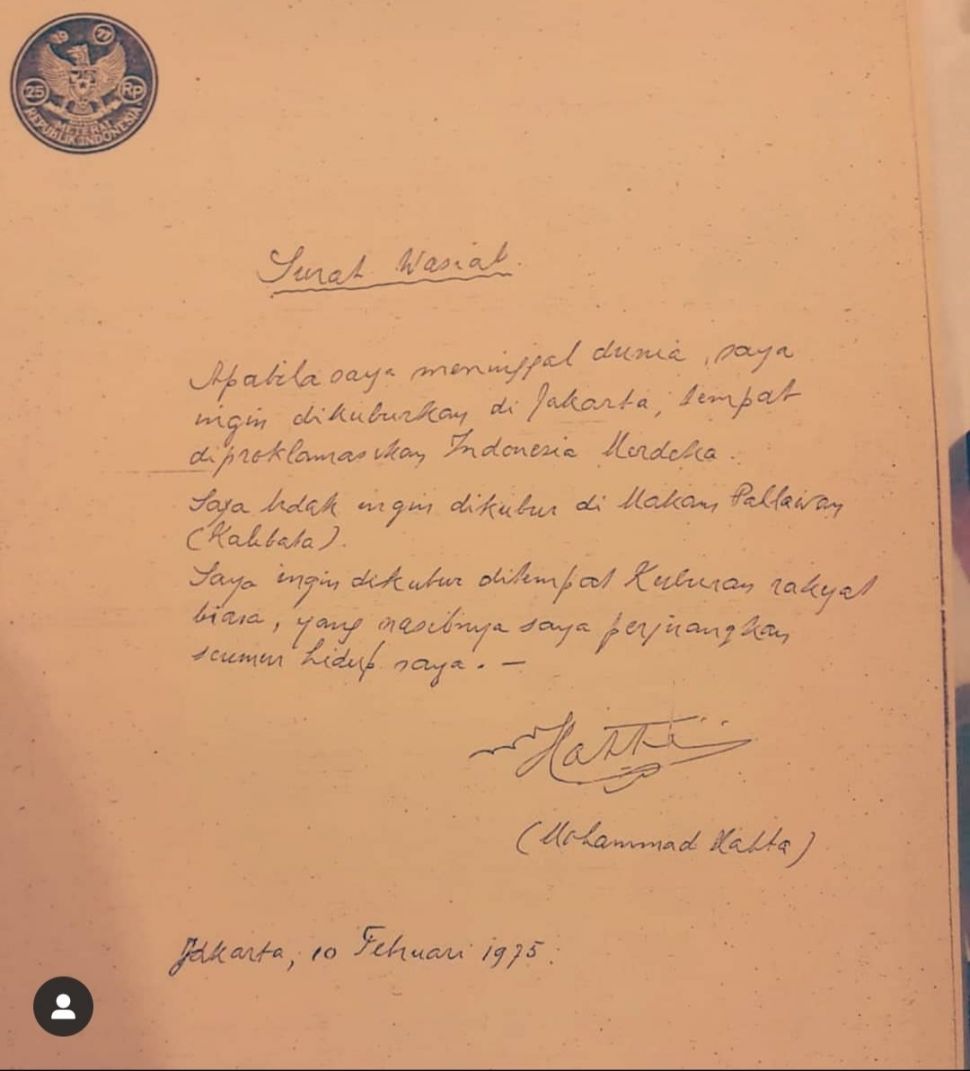 19 77
25 Rp
METERAI
REPUBLIK INDONESIA
Surat Wasiat.
Apabila saya meninggal dunia, saya
ingin dikuburkan di Jakarta, tempat
diproklamasikan Indonesia Merdeka.
Saya tidak ingin dikubur di Makam Pahlawan
(Kalibata).
Saya ingin dikubur ditempat Kuburan rakyat
biasa, yang nasibnya saya perjuangkan
seumur hidup saya. —
Hatta
(Mohammad Hatta)
Jakarta, 10 Februari 1975.